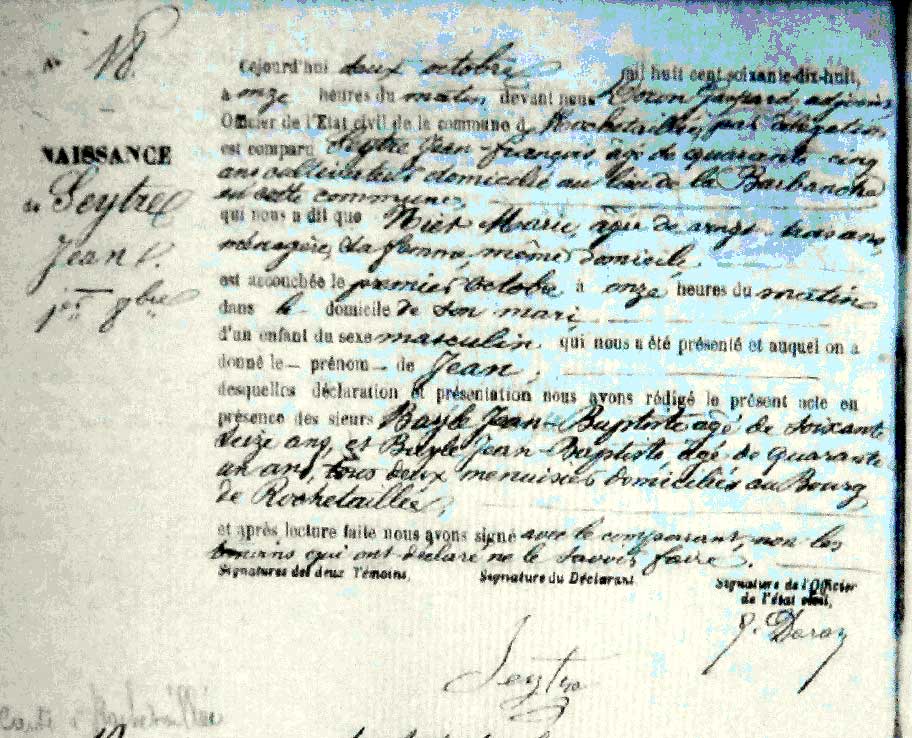 N° 18.
NAISSANCE
de Seytre
Jean
1er 8bre
Cejourd'hui deux octobre mil huit cent soixante-dix-huit,
à onze heures du matin, devant nous Gaspard, adjoint,
Officier de l'Etat civil de la commune de Rochetaillée, par délégation
est comparu Seytre Jean-François, âgé de quarante cinq
ans cultivateur domicilié au lieu de la Barbanche
en cette commune,
qui nous a dit que Marie, âgée de vingt trois ans,
ménagère, sa femme, même domicile,
est accouchée le premier octobre à onze heures du matin
dans le domicile de son mari,
d'un enfant du sexe masculin qui nous a été présenté et auquel on a
donné le prénom de Jean,
desquelles déclaration et présentation nous avons rédigé le présent acte en
présence des sieurs Bayle Jean-Baptiste âgé de soixante
ans, et Bayle Jean-Baptiste âgé de quarante
un ans, tous deux menuisiers domiciliés au Bourg
de Rochetaillée,
et après lecture faite nous avons signé avec le comparant, non les
témoins qui ont déclaré ne le savoir faire.
Signatures des deux Témoins,
Signature du Déclarant
Signature de l'Officier
de l'état civil,
Seytre
Rochetaillée